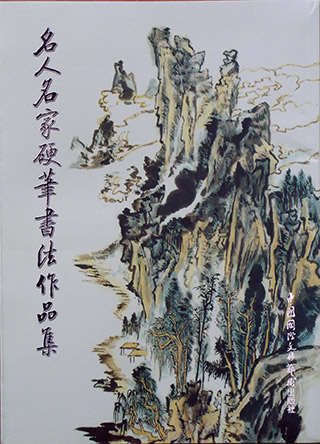 名人名家硬筆書法作品集
中國國際文化藝術出版社